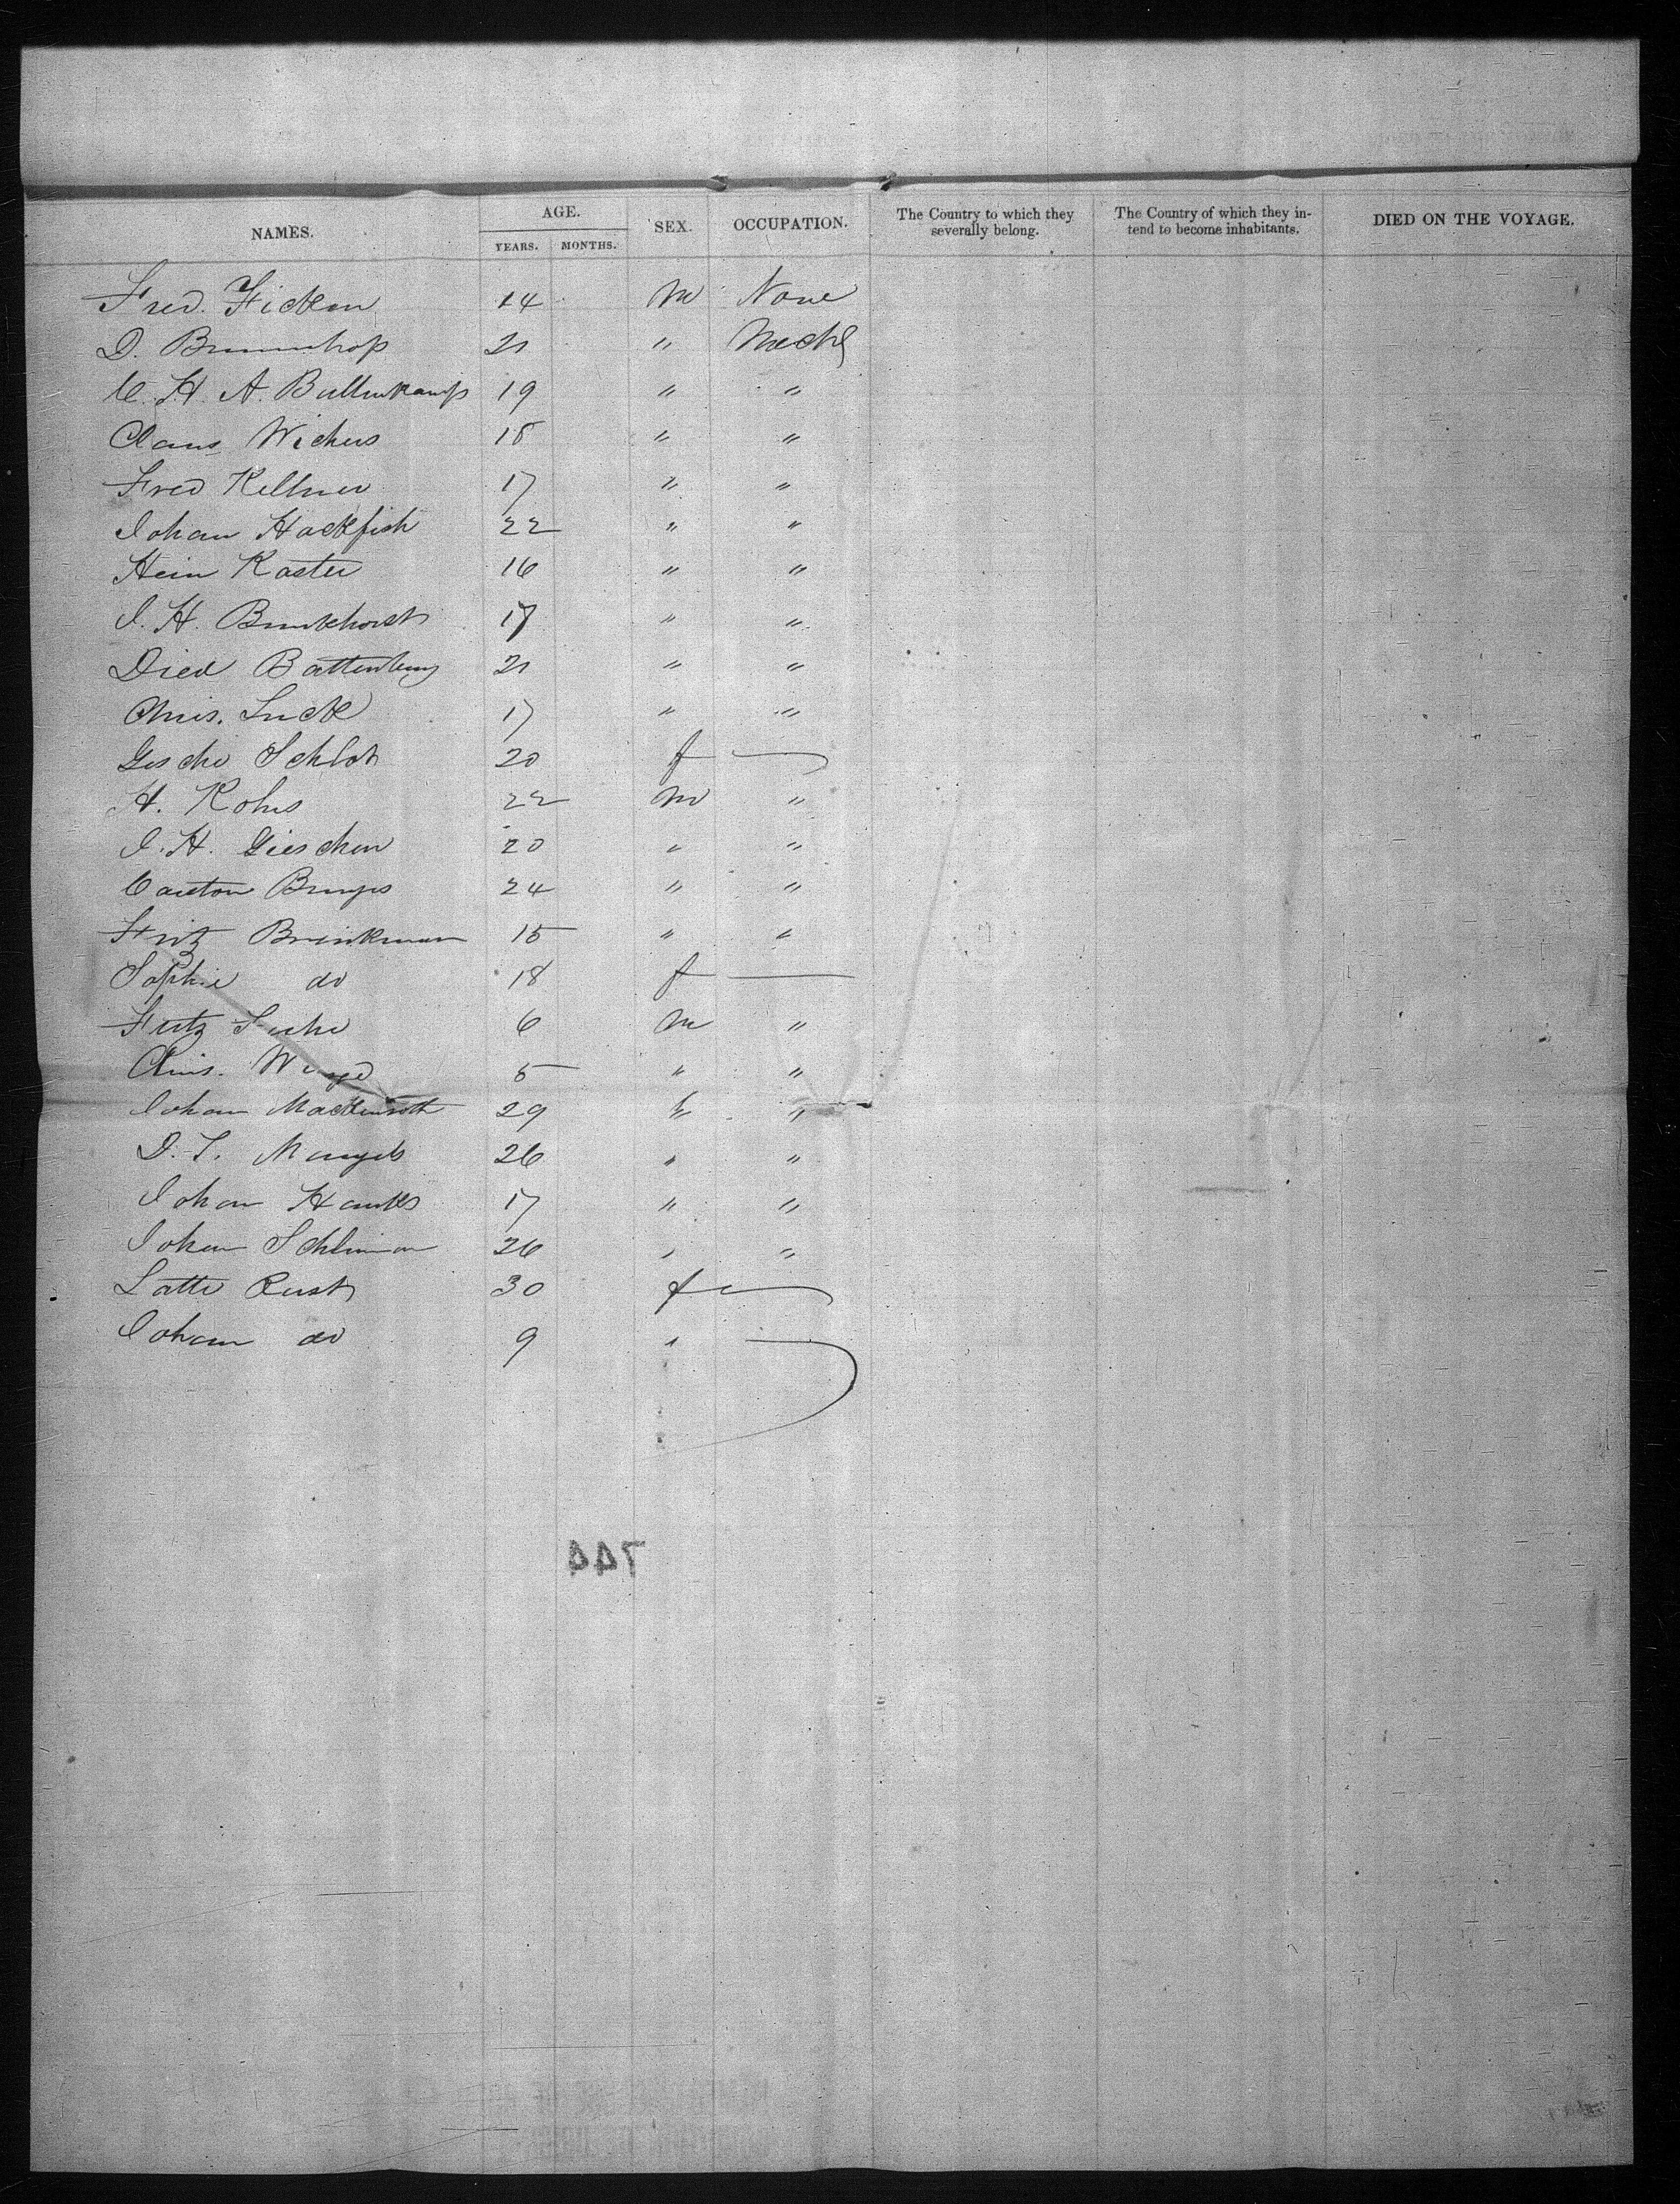 NAMES. AGE. SEX. OCCUPATION. The Country to which they severally belong. The Country of which they intend to become inhabitants. DIED ON THE VOYAGE.
YEARS. MONTHS.
Fred. Ficken 14 M None
D. Brunnhop 21 " Mech
C. H. A. Bullenkamp 19 " "
Claus Wichers 18 " "
Fred Kellner 17 " "
Johan Hackfish 22 " "
Hein Koster 16 " "
J. H. Brunkhorst 17 " "
Died Battenburg 21 " "
Chris. Luck 17 " "
Gesche Schlot 20 f
H. Kohrs 22 M "
J. H. Gieschen 20 " "
Carsten 24 " "
Fritz Brinkman 15 " "
Sophie do 18 f
Fritz 6 M "
Chris. 5 " "
Johan Mackenroth 29 " "
D. Mangels 26 " "
Johan 17 " "
Johan 26 " "
Rust 30 f
Johan do 9 "
744